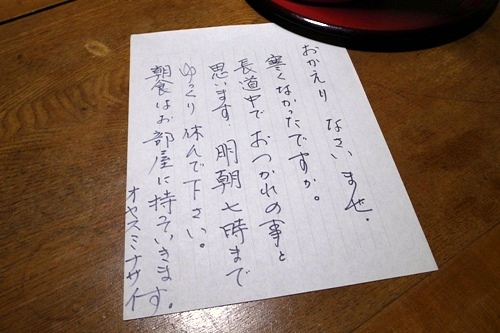 おかえり なさいませ.
寒くなかったですか。
長道中で おつかれの事と
思います. 明朝七時まで
ゆっくり休んで下さい。
朝食はお部屋に持っていきます。
オヤスミナサイ